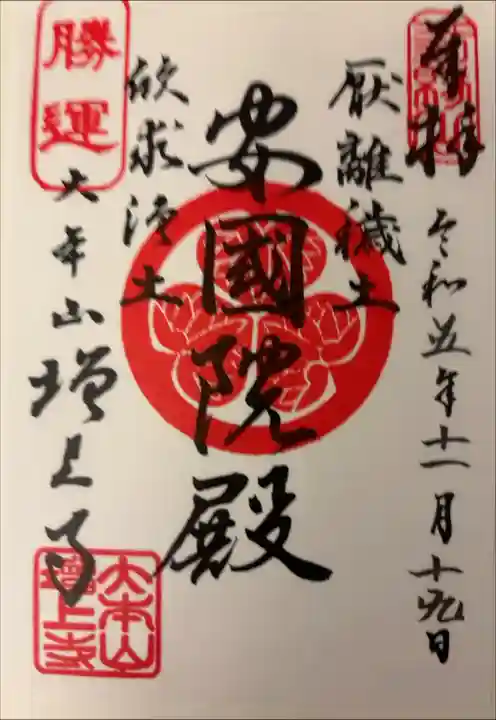 奉拝
令和五年十一月十九日
厭離穢土
安國院殿
欣求浄土
勝運
大本山増上寺
大本山増上寺